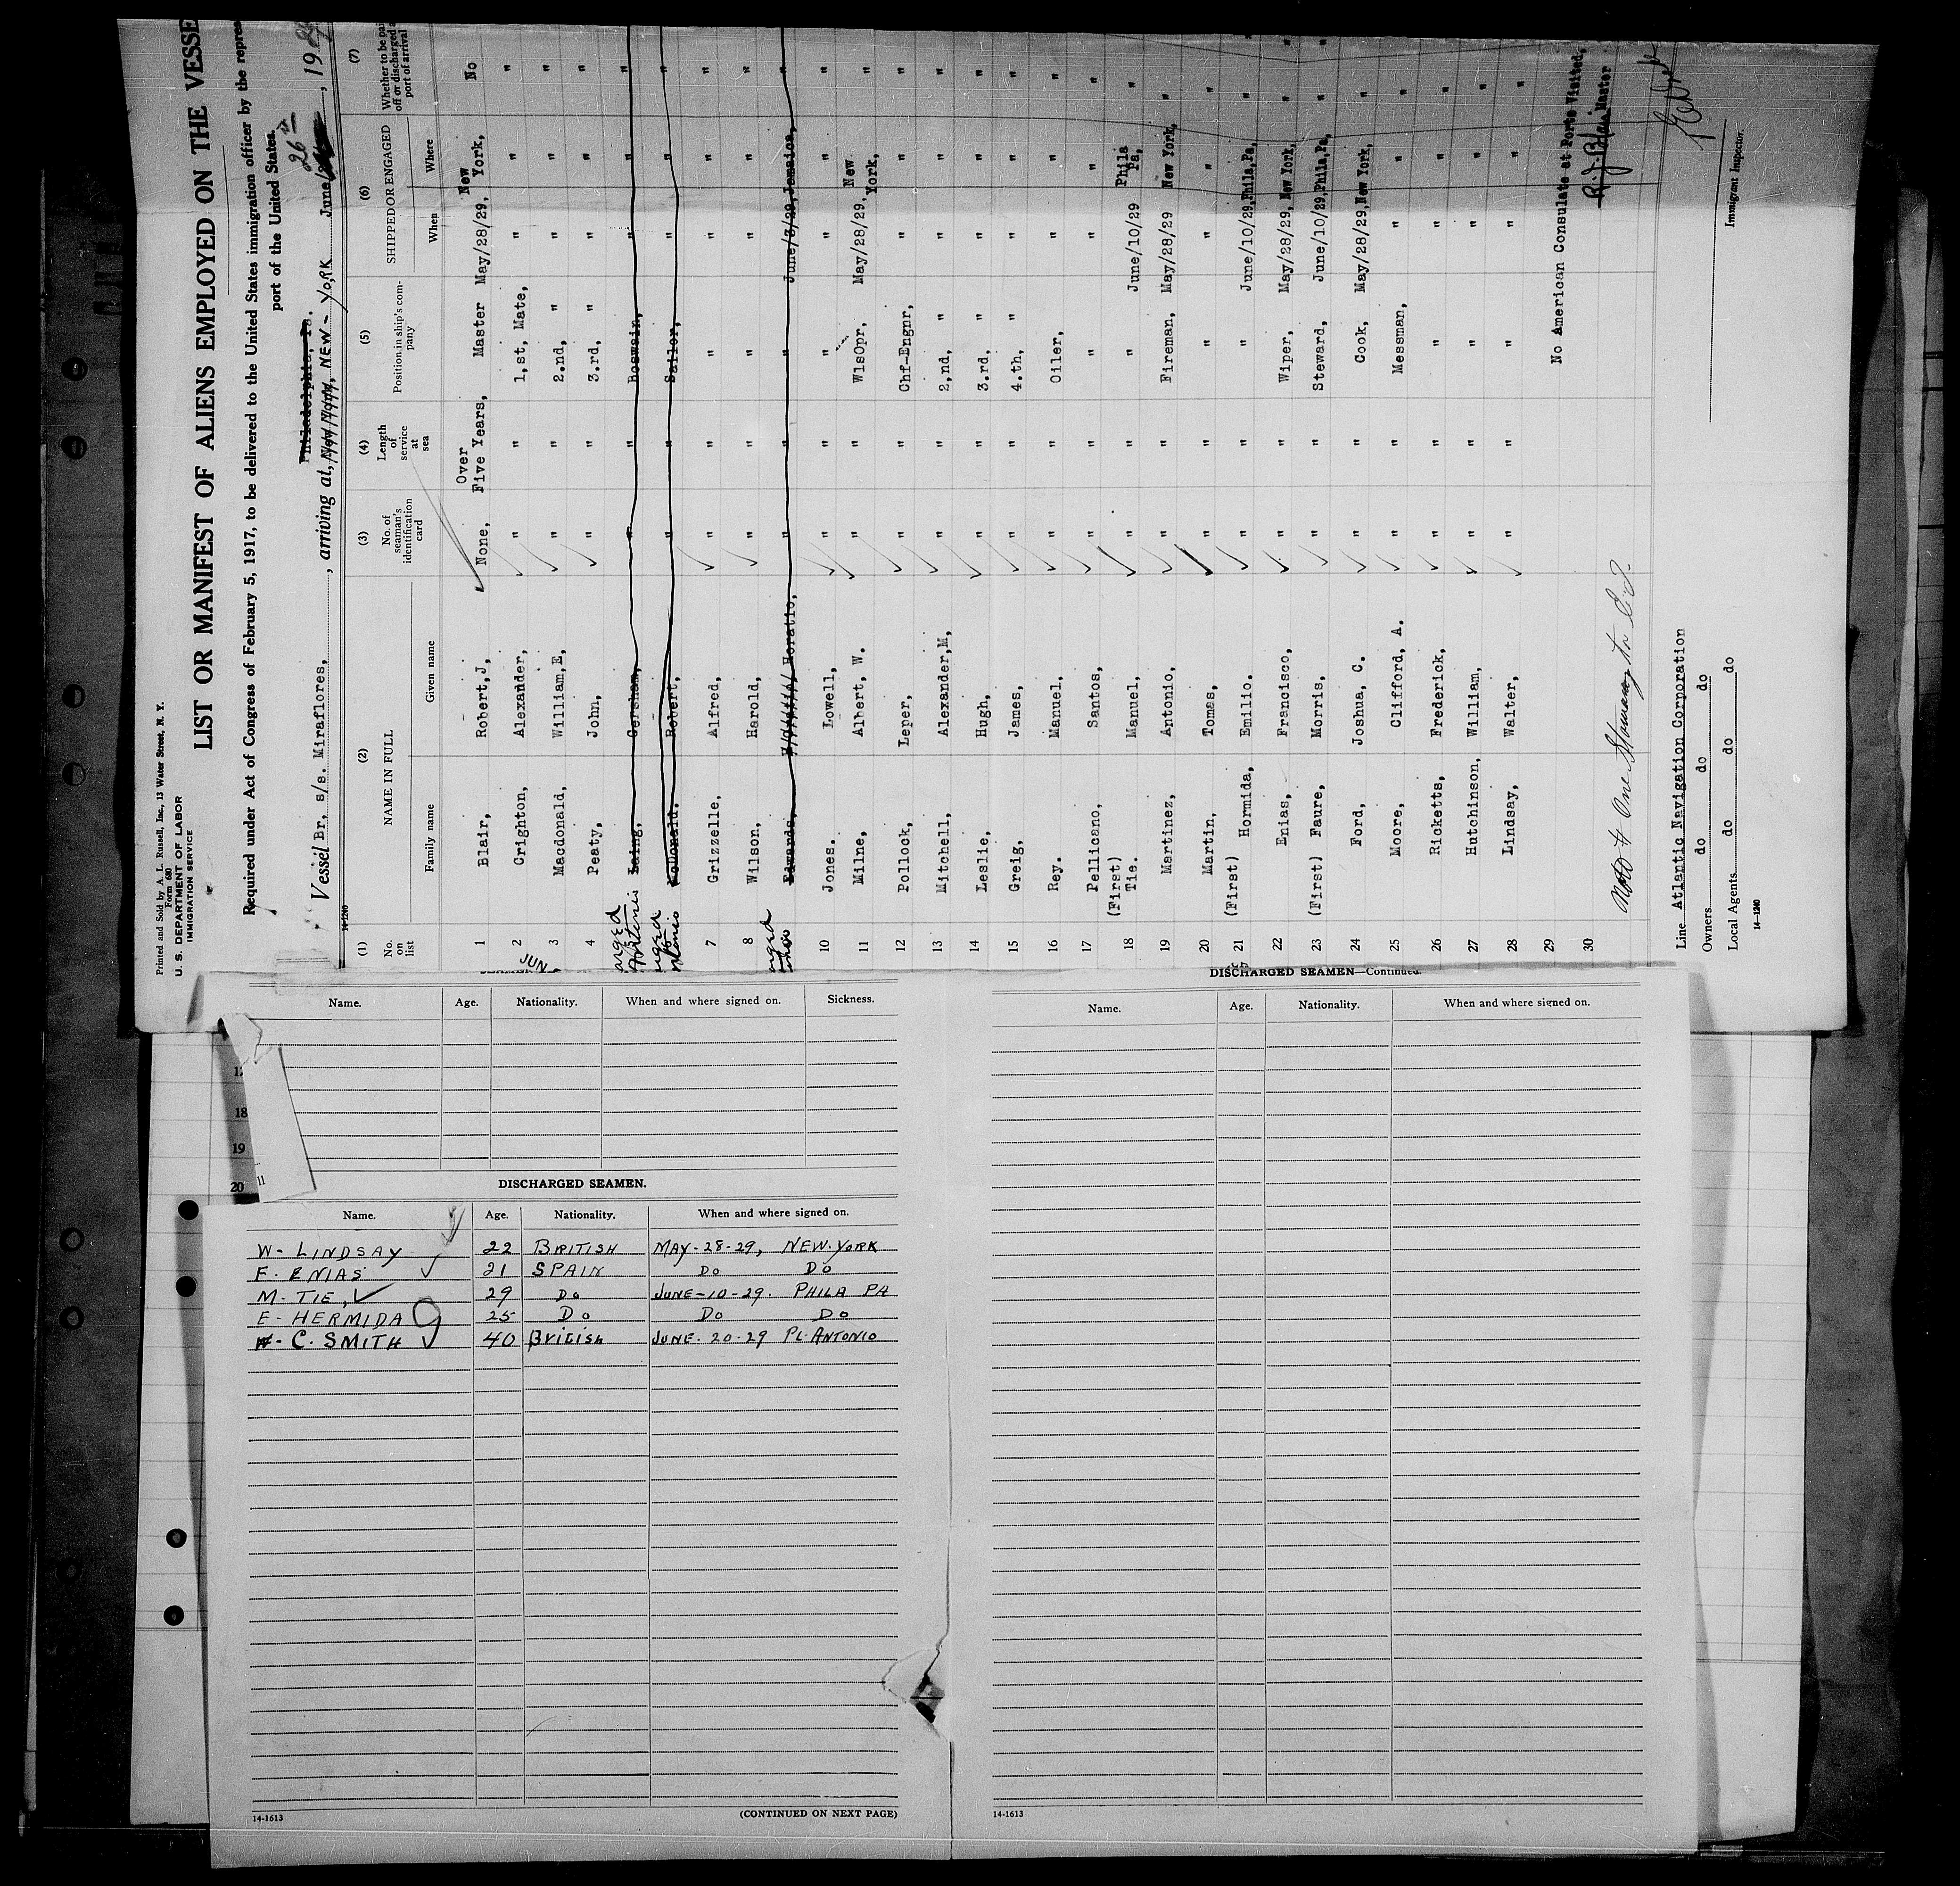 Printed and Sold by A. L. Russell, Inc., 13 Water Street, N. Y.
Form 680
U. S. DEPARTMENT OF LABOR
IMMIGRATION SERVICE
LIST OR MANIFEST OF ALIENS EMPLOYED ON THE VESSE
Required under Act of Congress of February 5, 1917, to be delivered to the United States immigration officer by the repre
port of the United States.
Philadelphia, Pa. 26th
Vessel Br, s/s. Miraflores, , arriving at, NEW-YORK June , 1929
14-1240
(1) (2) (3) (4) (5) (6) (7)
No. on list NAME IN FULL No. of seaman's identification card Length of service at sea Position in ship's company SHIPPED OR ENGAGED Whether to be pai off or discharged a port of arrival
Family name Given name When Where
1 Blair, Robert,J, None, Over Five Years, Master May/28/29, New York, No
2 Crighton, Alexander, " " 1,st, Mate, " " "
3 Macdonald, William,E, " " 2.nd, " " " "
4 Peaty, John, " " 3.rd, " " " "
Laing, Gersham, " " Boswain, " " "
McDonald. Robert, " " Sailor, " " "
7 Grizzelle. Alfred, " " " " " "
8 Wilson, Harold, " " " " " "
Edwards, Horatio, " " " June/3/29, Jamaica, "
10 Jones. Lowell, " " " " " "
11 Milne, Albert, W. " " WlsOpr, May/28/29, New York, "
12 Pollock, Leper, " " Chf-Engnr, " " "
13 Mitchell, Alexander,M, " " 2,nd, " " " "
14 Leslie, Hugh, " " 3.rd, " " " "
15 Greig, James, " " 4.th, " " " "
16 Rey. Manuel. " " Oiler, " " "
17 Pellicano, Santos, " " " " " "
18 (First) Tie. Manuel, " " " June/10/29 Phila Pa, "
19 Martinez, Antonio, " " Fireman, May/28/29 New York, "
20 Martin, Tomas, " " " " " "
21 (First) Hormida, Emilio. " " " June/10/29,Phila,Pa, "
22 Enias, Francisco, " " Wiper, May/28/29, New York, "
23 (First) Faure, Morris, " " Steward, June/10/29,Phila,Pa, "
24 Ford, Joshua, C. " " Cook, May/28/29,New York, "
25 Moore, Clifford, A. " " Messman, " " "
26 Ricketts, Frederick, " " " " " "
27 Hutchinson, William, " " " " " "
28 Lindsay, Walter, " " " " " "
29 No American Consulate at Ports Visited,
30 R. J. Blair Master
One
Line Atlantic Navigation Corporation
Owners do do do
Local Agents do do do
Immigrant Inspector.
14-1240
JUN
Name. Age. Nationality. When and where signed on. Sickness.
18
19
20
11
DISCHARGED SEAMEN.
Name. Age. Nationality. When and where signed on.
W- LINDSAY 22 BRITISH MAY-28-29, NEW-YORK
F- ENIAS 21 SPAIN DO DO
M- TIE, 29 Do JUNE-10-29. PHILA PA
E- HERMIDA 25 Do Do Do
C. SMITH 40 British JUNE-20-29 Pt. ANTONIO
14-1613
(CONTINUED ON NEXT PAGE)
DISCHARGED SEAMEN—Continued.
Name. Age. Nationality. When and where signed on.
14-1613